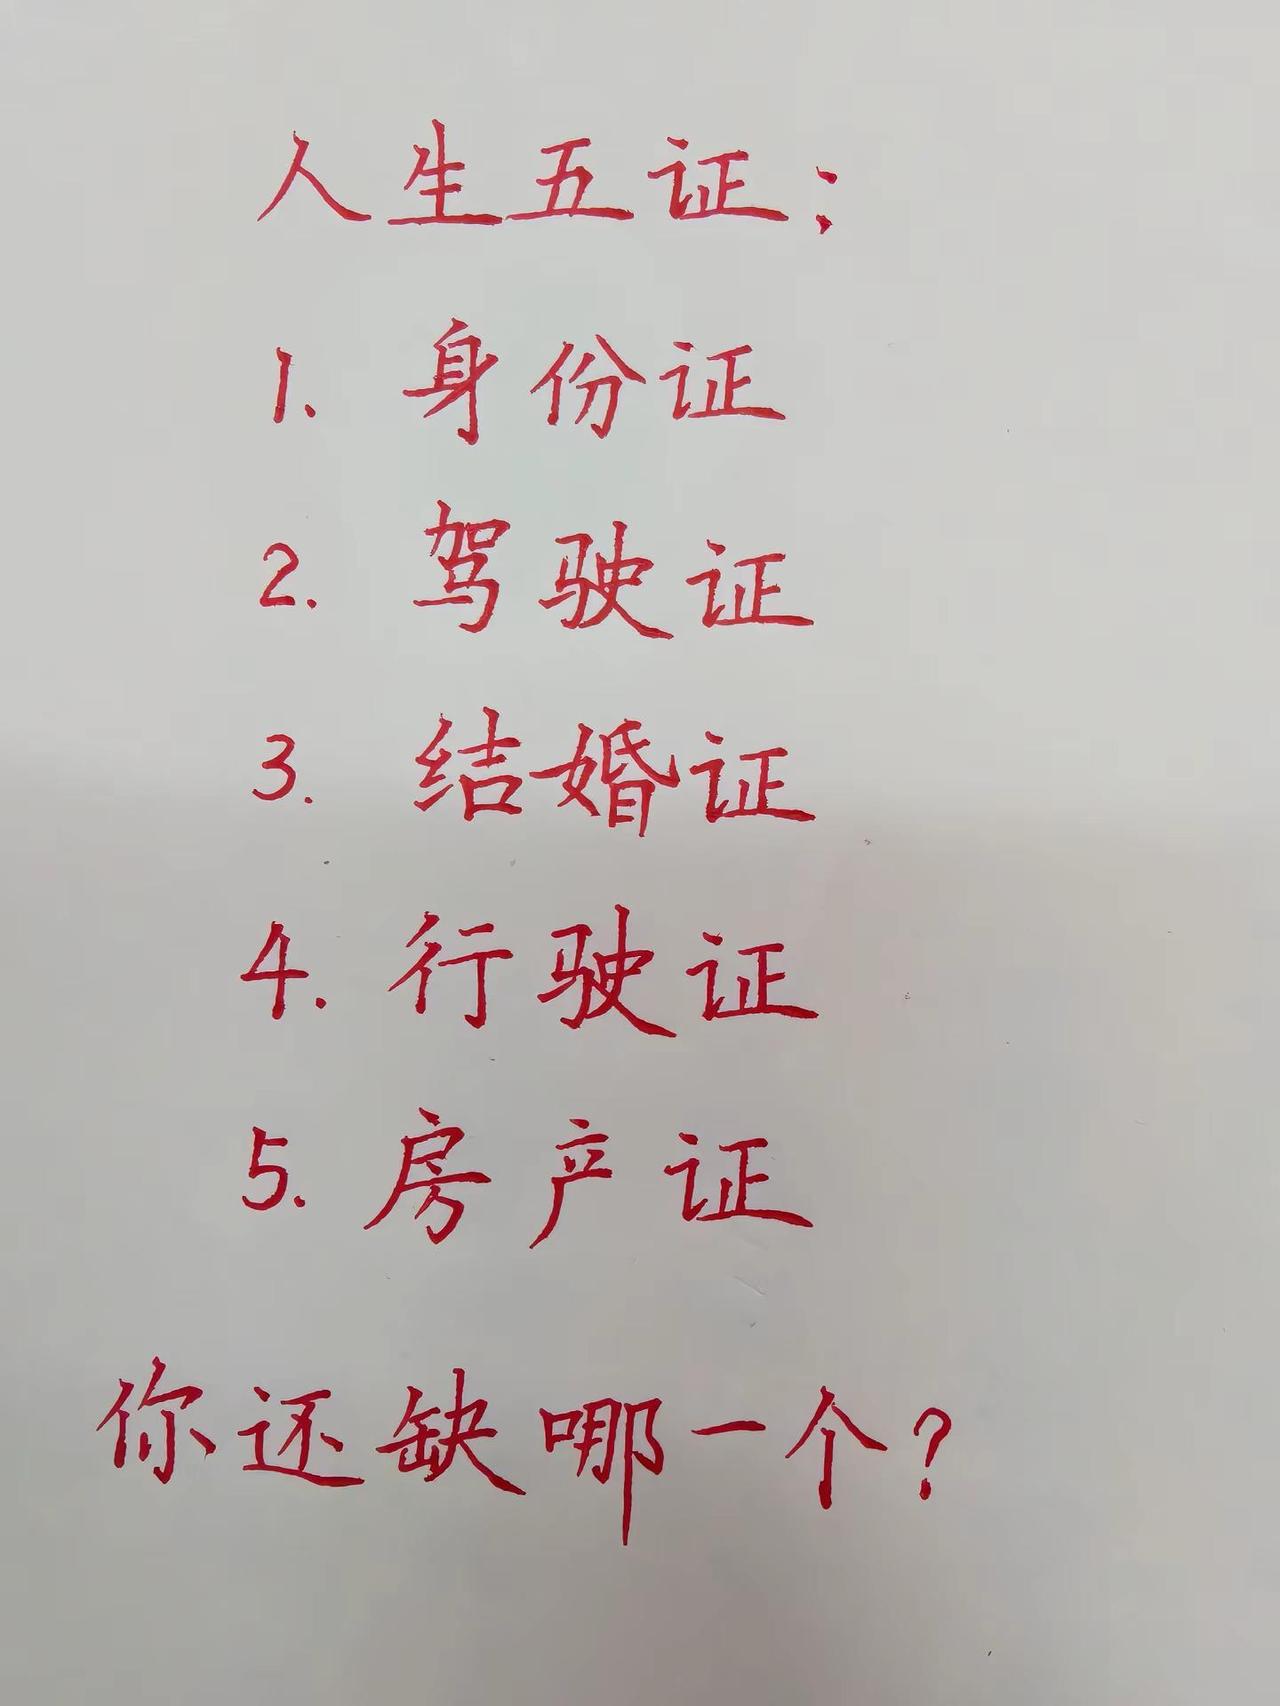 人生五证：
1. 身份证
2. 驾驶证
3. 结婚证
4. 行驶证
5. 房产证
你还缺哪一个？